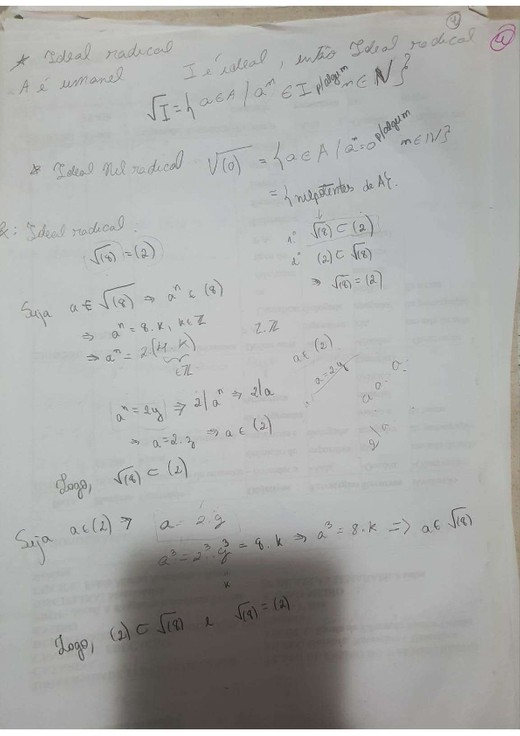 * Ideal radical
A é um anel
I é ideal, então Ideal radical
√I = { a ∈ A / aⁿ ∈ I p/ algum n ∈ N }
* Ideal Nil radical √(0) = { a ∈ A / aⁿ = 0 p/ algum n ∈ N }
= { nilpotentes de A }.
: Ideal radical.
√(8) = (2)
1º √(8) ⊂ (2)
2º (2) ⊂ √(8)
⇒ √(8) = (2)
Seja a ∈ √(8) ⇒ aⁿ ∈ (8)
⇒ aⁿ = 8.k, k ∈ Z
⇒ aⁿ = 2.(4.k)
∈ Z
2.Z
a ∈ (2)
a = 2.y
aⁿ = 2y ⇒ 2 | aⁿ ⇒ 2 | a
⇒ a = 2.z ⇒ a ∈ (2)
Logo, √(8) ⊂ (2)
Seja a ∈ (2) ⇒ a = 2.y
a³ = 2³.y³ = 8.k ⇒ a³ = 8.k ⇒ a ∈ √(8)
k
Logo, (2) ⊂ √(8) e √(8) = (2)